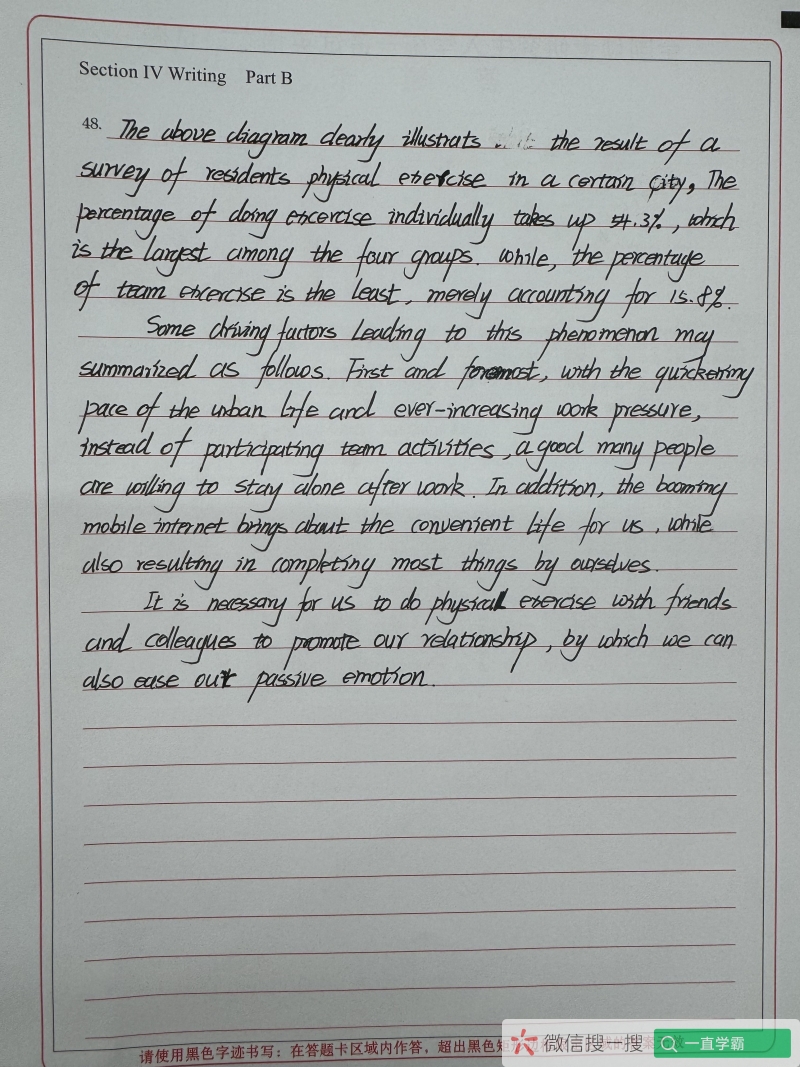 Section IV Writing Part B
48. The above diagram clearly illustrats the result of a
survey of residents physical exercise in a certain city, The
percentage of doing excercise individually takes up 54.3%, which
is the largest among the four groups. While, the percentage
of team excercise is the least, merely accounting for 15.8%.
Some driving factors leading to this phenomenon may
summarized as follows. First and foremost, with the quickening
pace of the urban life and ever-increasing work pressure,
instead of participating team activities, a good many people
are willing to stay alone after work. In addition, the booming
mobile internet brings about the convenient life for us, while
also resulting in completing most things by ourselves.
It is necessary for us to do physical exercise with friends
and colleagues to promote our relationship, by which we can
also ease our passive emotion.
请使用黑色字迹书写:在答题卡区域内作答,超出黑色矩形边
微信搜一搜
一直学霸